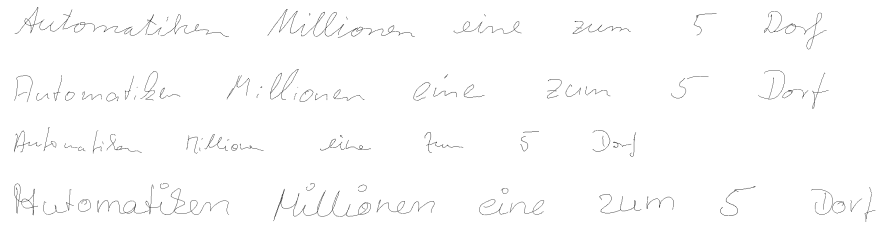 Automatiken Millionen eine zum 5 Dorf
Automatiken Millionen eine zum 5 Dorf
Automatiken Millionen eine zum 5 Dorf
Automatiken Millionen eine zum 5 Dorf